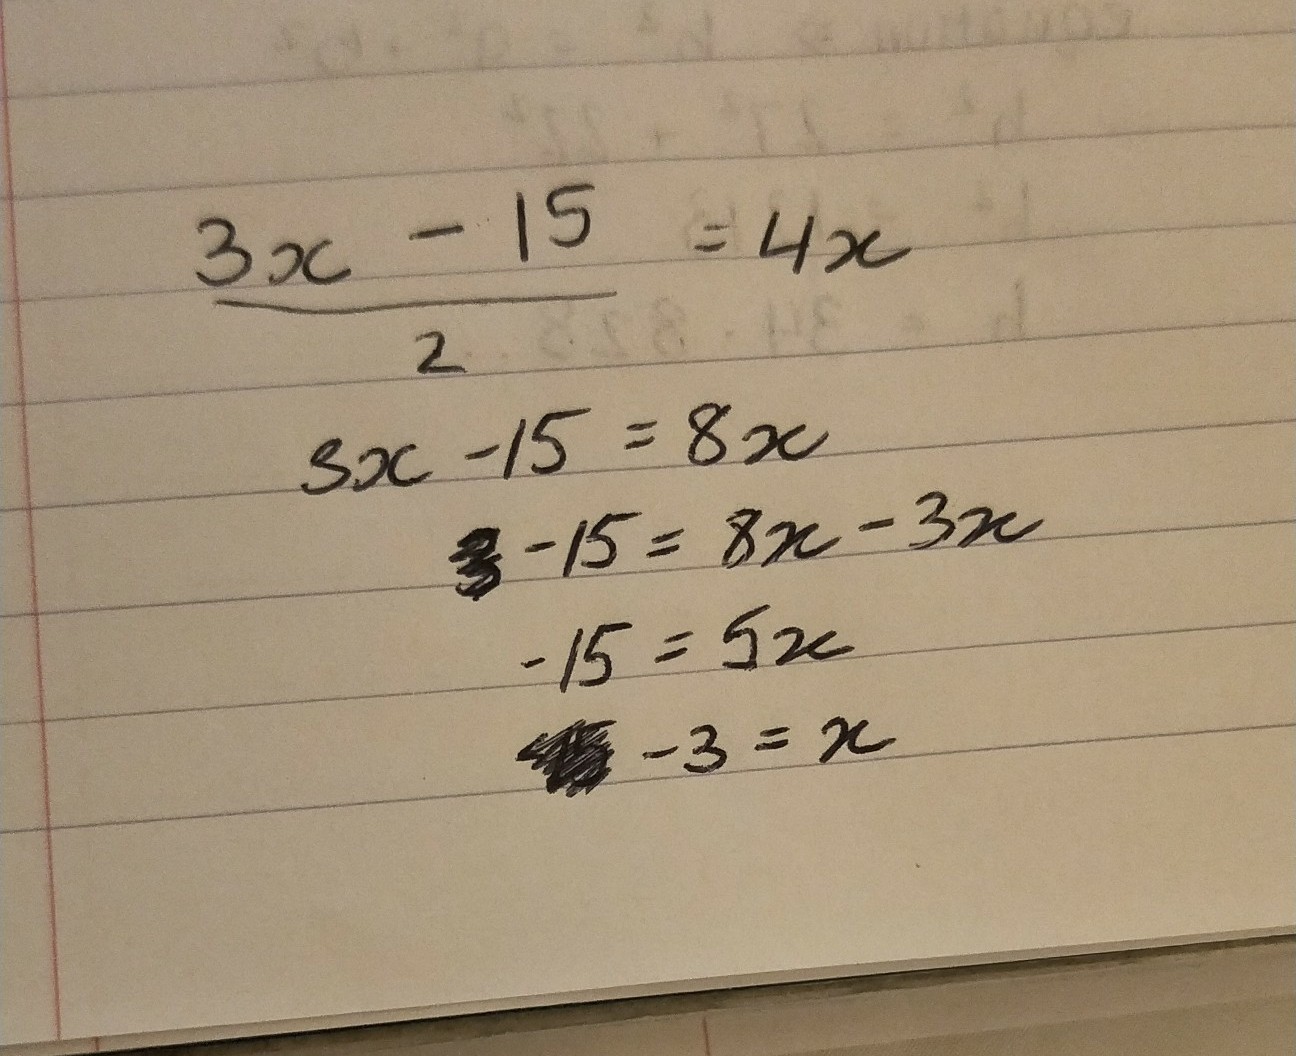 3x - 15 = 4x
2
3x - 15 = 8x
-15 = 8x - 3x
-15 = 5x
-3 = x